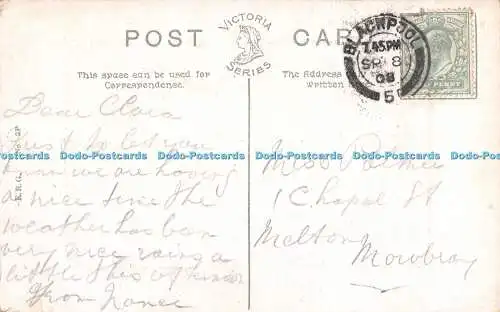 POST CARD
VICTORIA
SERIES
This space can be used for
Correspondence.
The Address
Written
BLACKPOOL
7.45PM
SP 8
08
5
PENNY
Dear Clara
Just to let you
know we are having
a nice time the
weather has been
very nice raing a
little this afternoon
From
Miss Palmer
1 Chapel St
Melton
Mowbray
Dodo Postcards Dodo Postcards Dodo Postcards Dodo Postcards Dodo Postcards